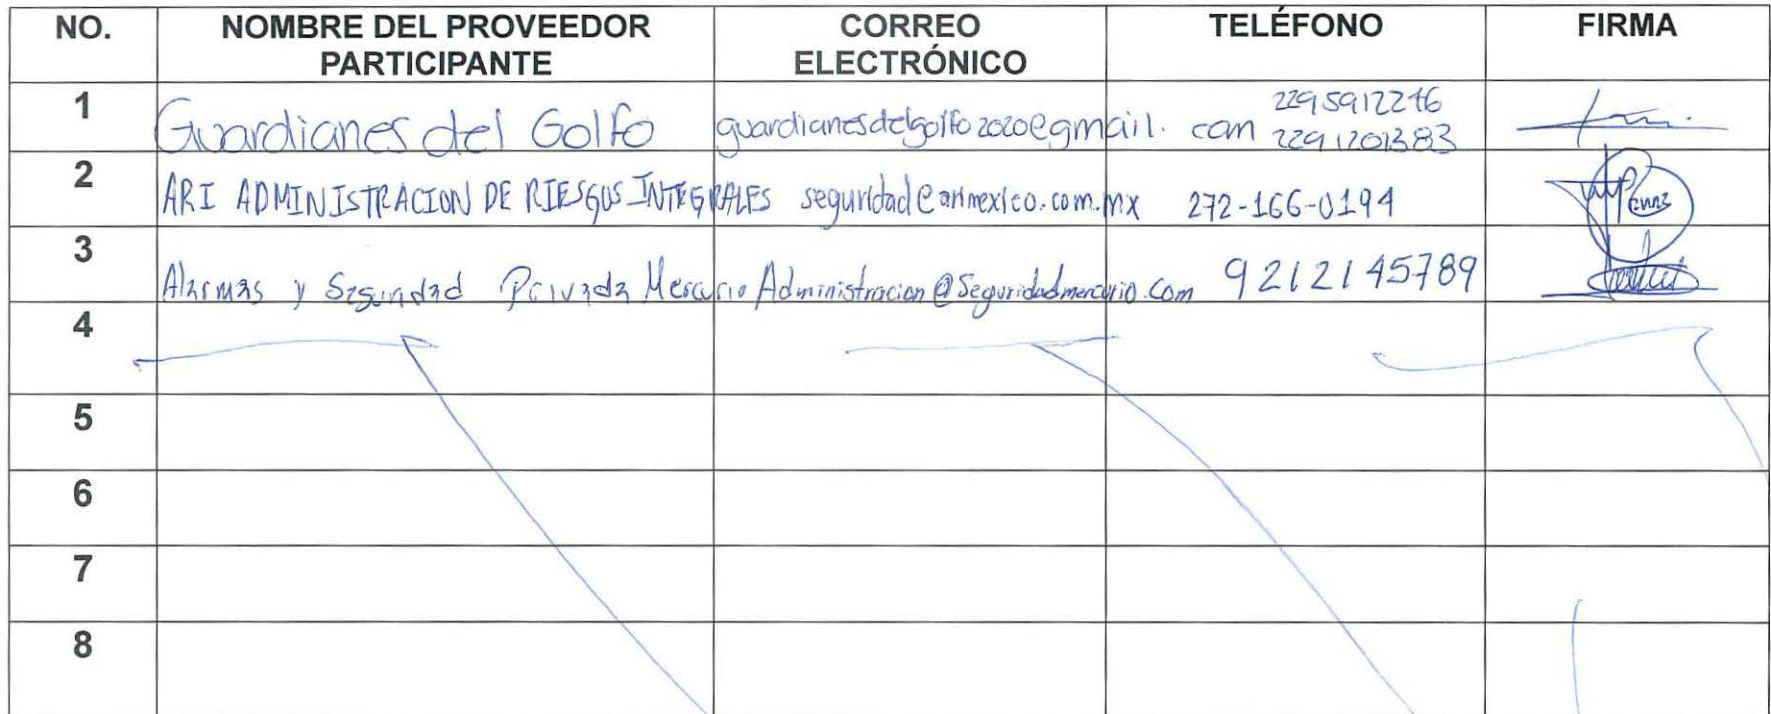 NO. NOMBRE DEL PROVEEDOR PARTICIPANTE CORREO ELECTRÓNICO TELÉFONO FIRMA
1 Guardianes del Golfo guardianesdelgolfo2020@gmail.com 2295912246
2291201383
2 ARI ADMINISTRACION DE RIESGOS INTEGRALES seguridad@arimexico.com.mx 272-166-0194
3 Alarmas y Seguridad Privada Mercurio Administracion@Seguridadmercurio.com 9212145789
4
5
6
7
8